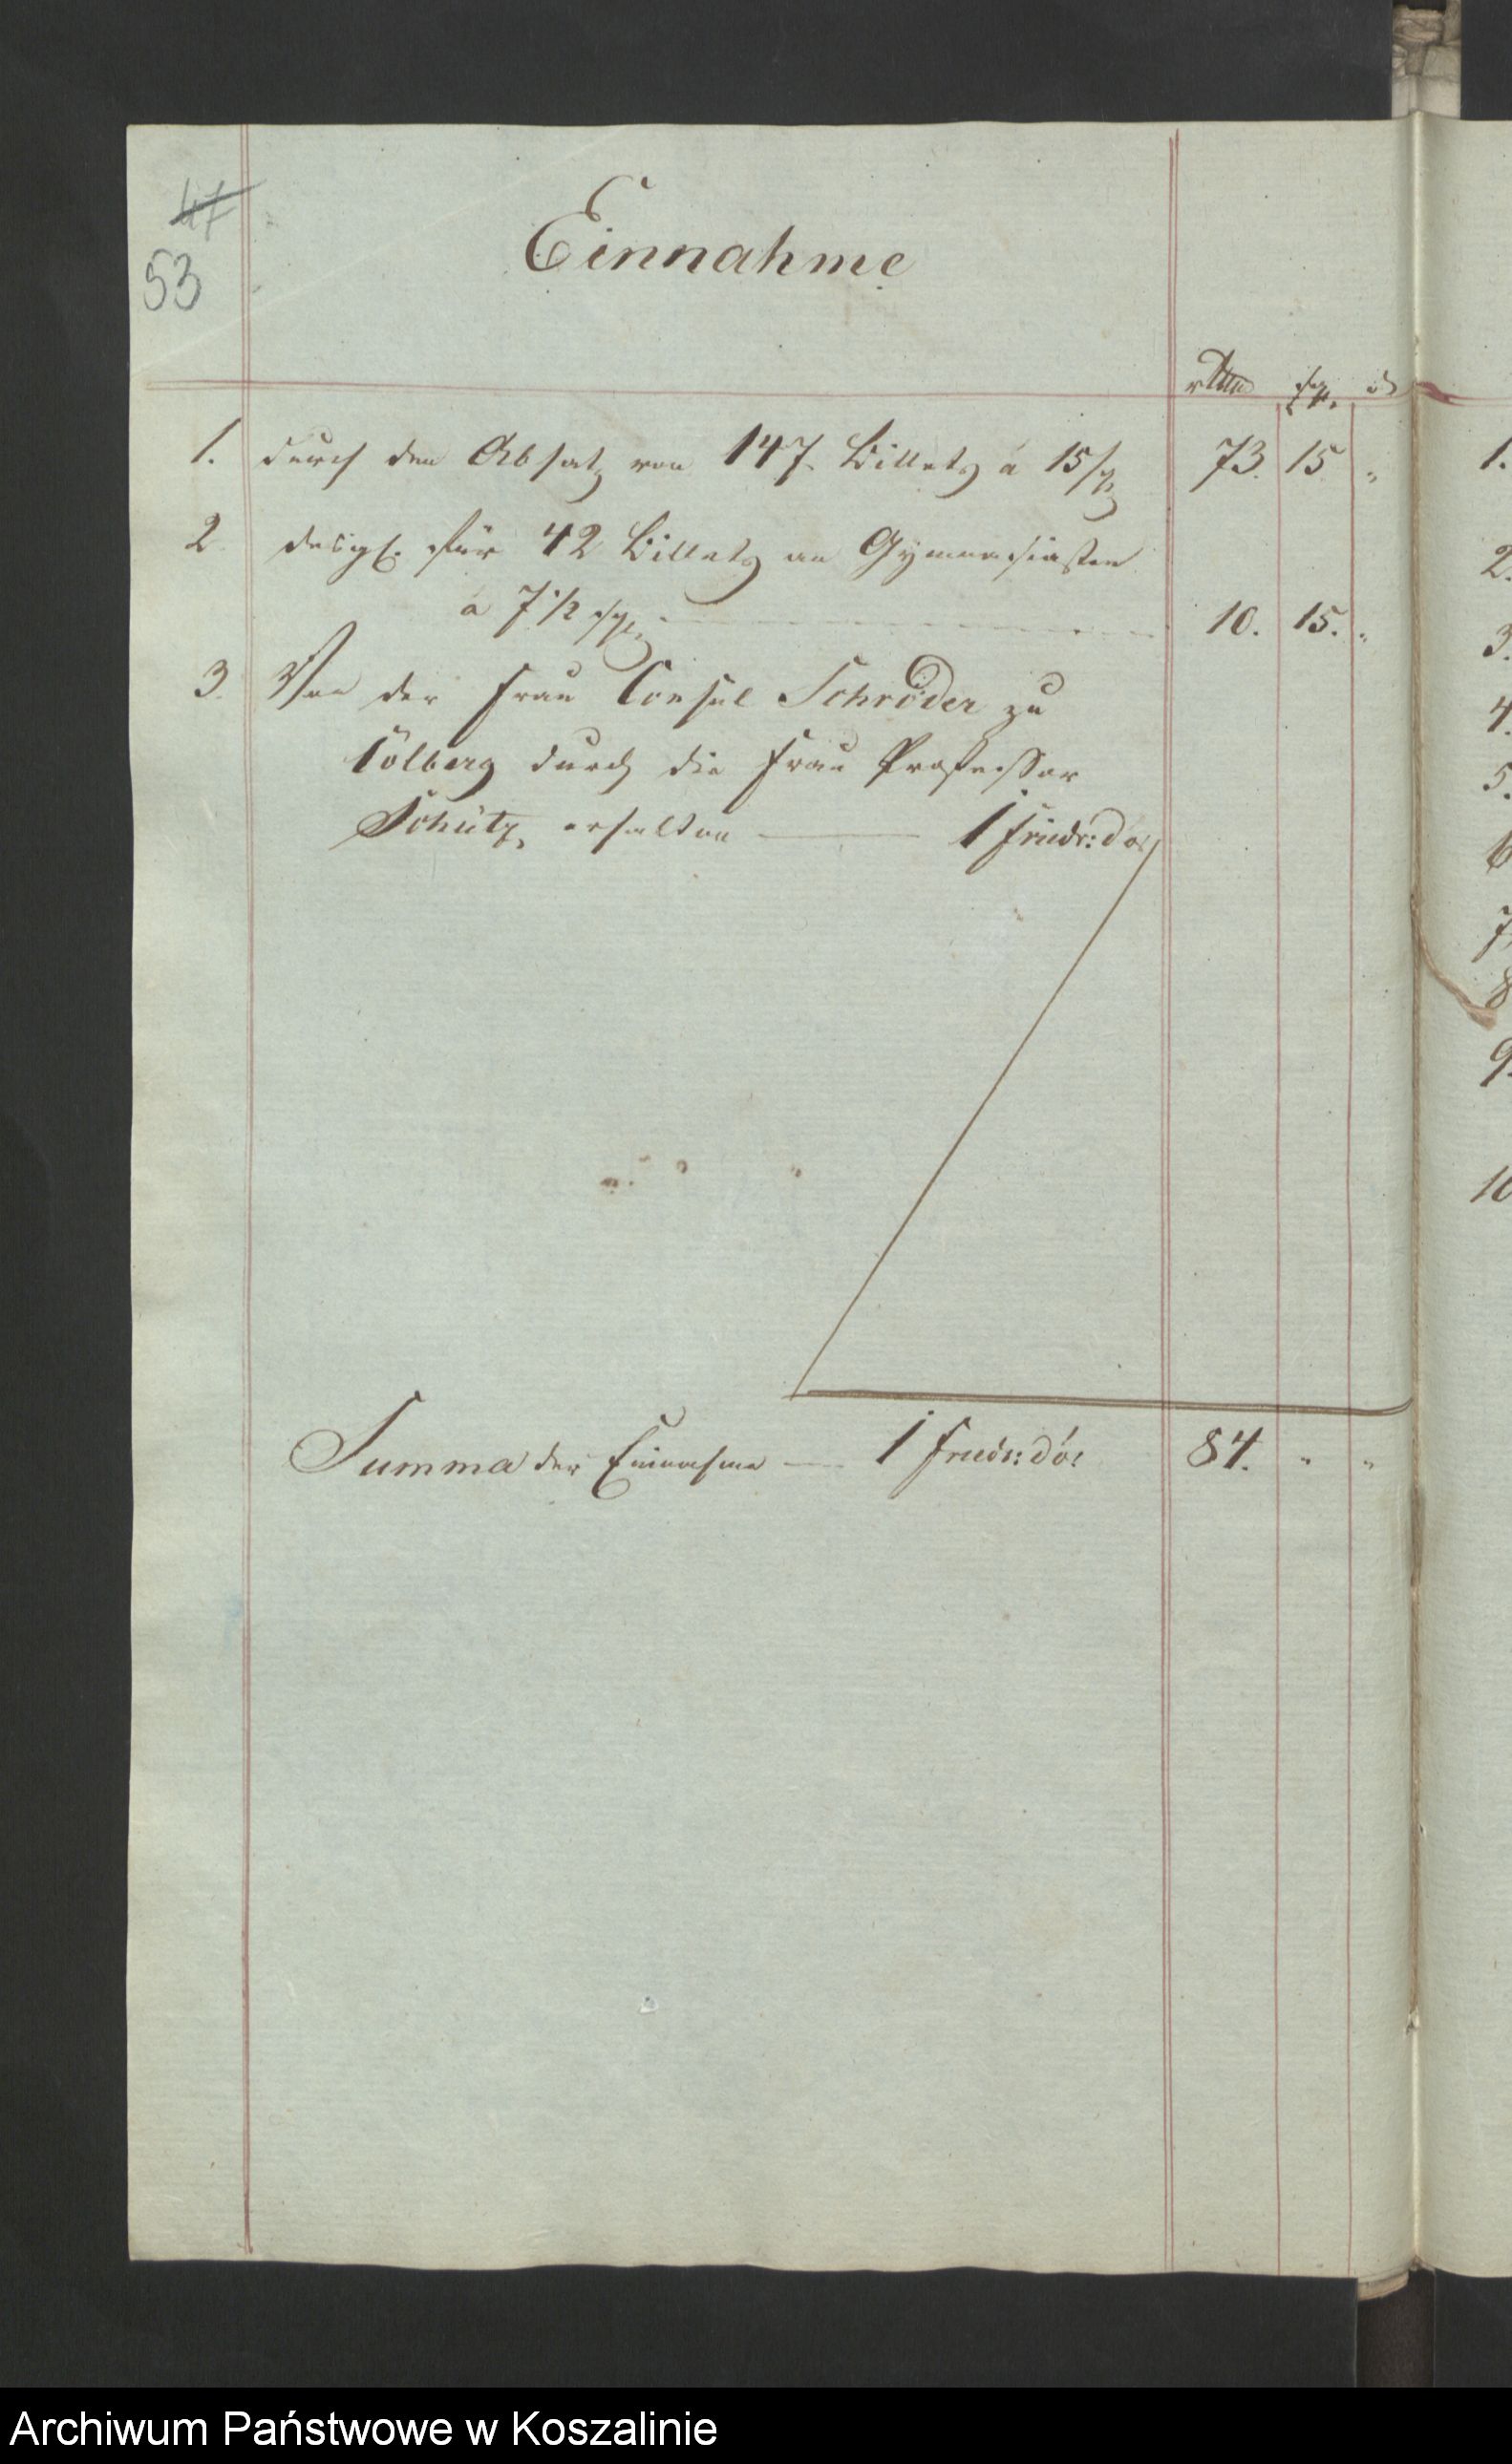 47
53
Einnahme
rthlr sgr. d
1. durch den Absatz von 147 Billets á 15 sgr 73. 15 "
2. desgl. für 42 Billets an Gymnasiasten
a 7 1/2 sgr. 10. 15. "
3. Von der Frau Consul Schröder zu
Colberg durch die Frau Professor
Schütz, erhalten — 1 Friedr:dor
Summa der Einnahme — 1 Friedr:dór 84. " "
1.
2.
3.
4.
5.
6
7.
8
9.
10
Archiwum Państwowe w Koszalinie